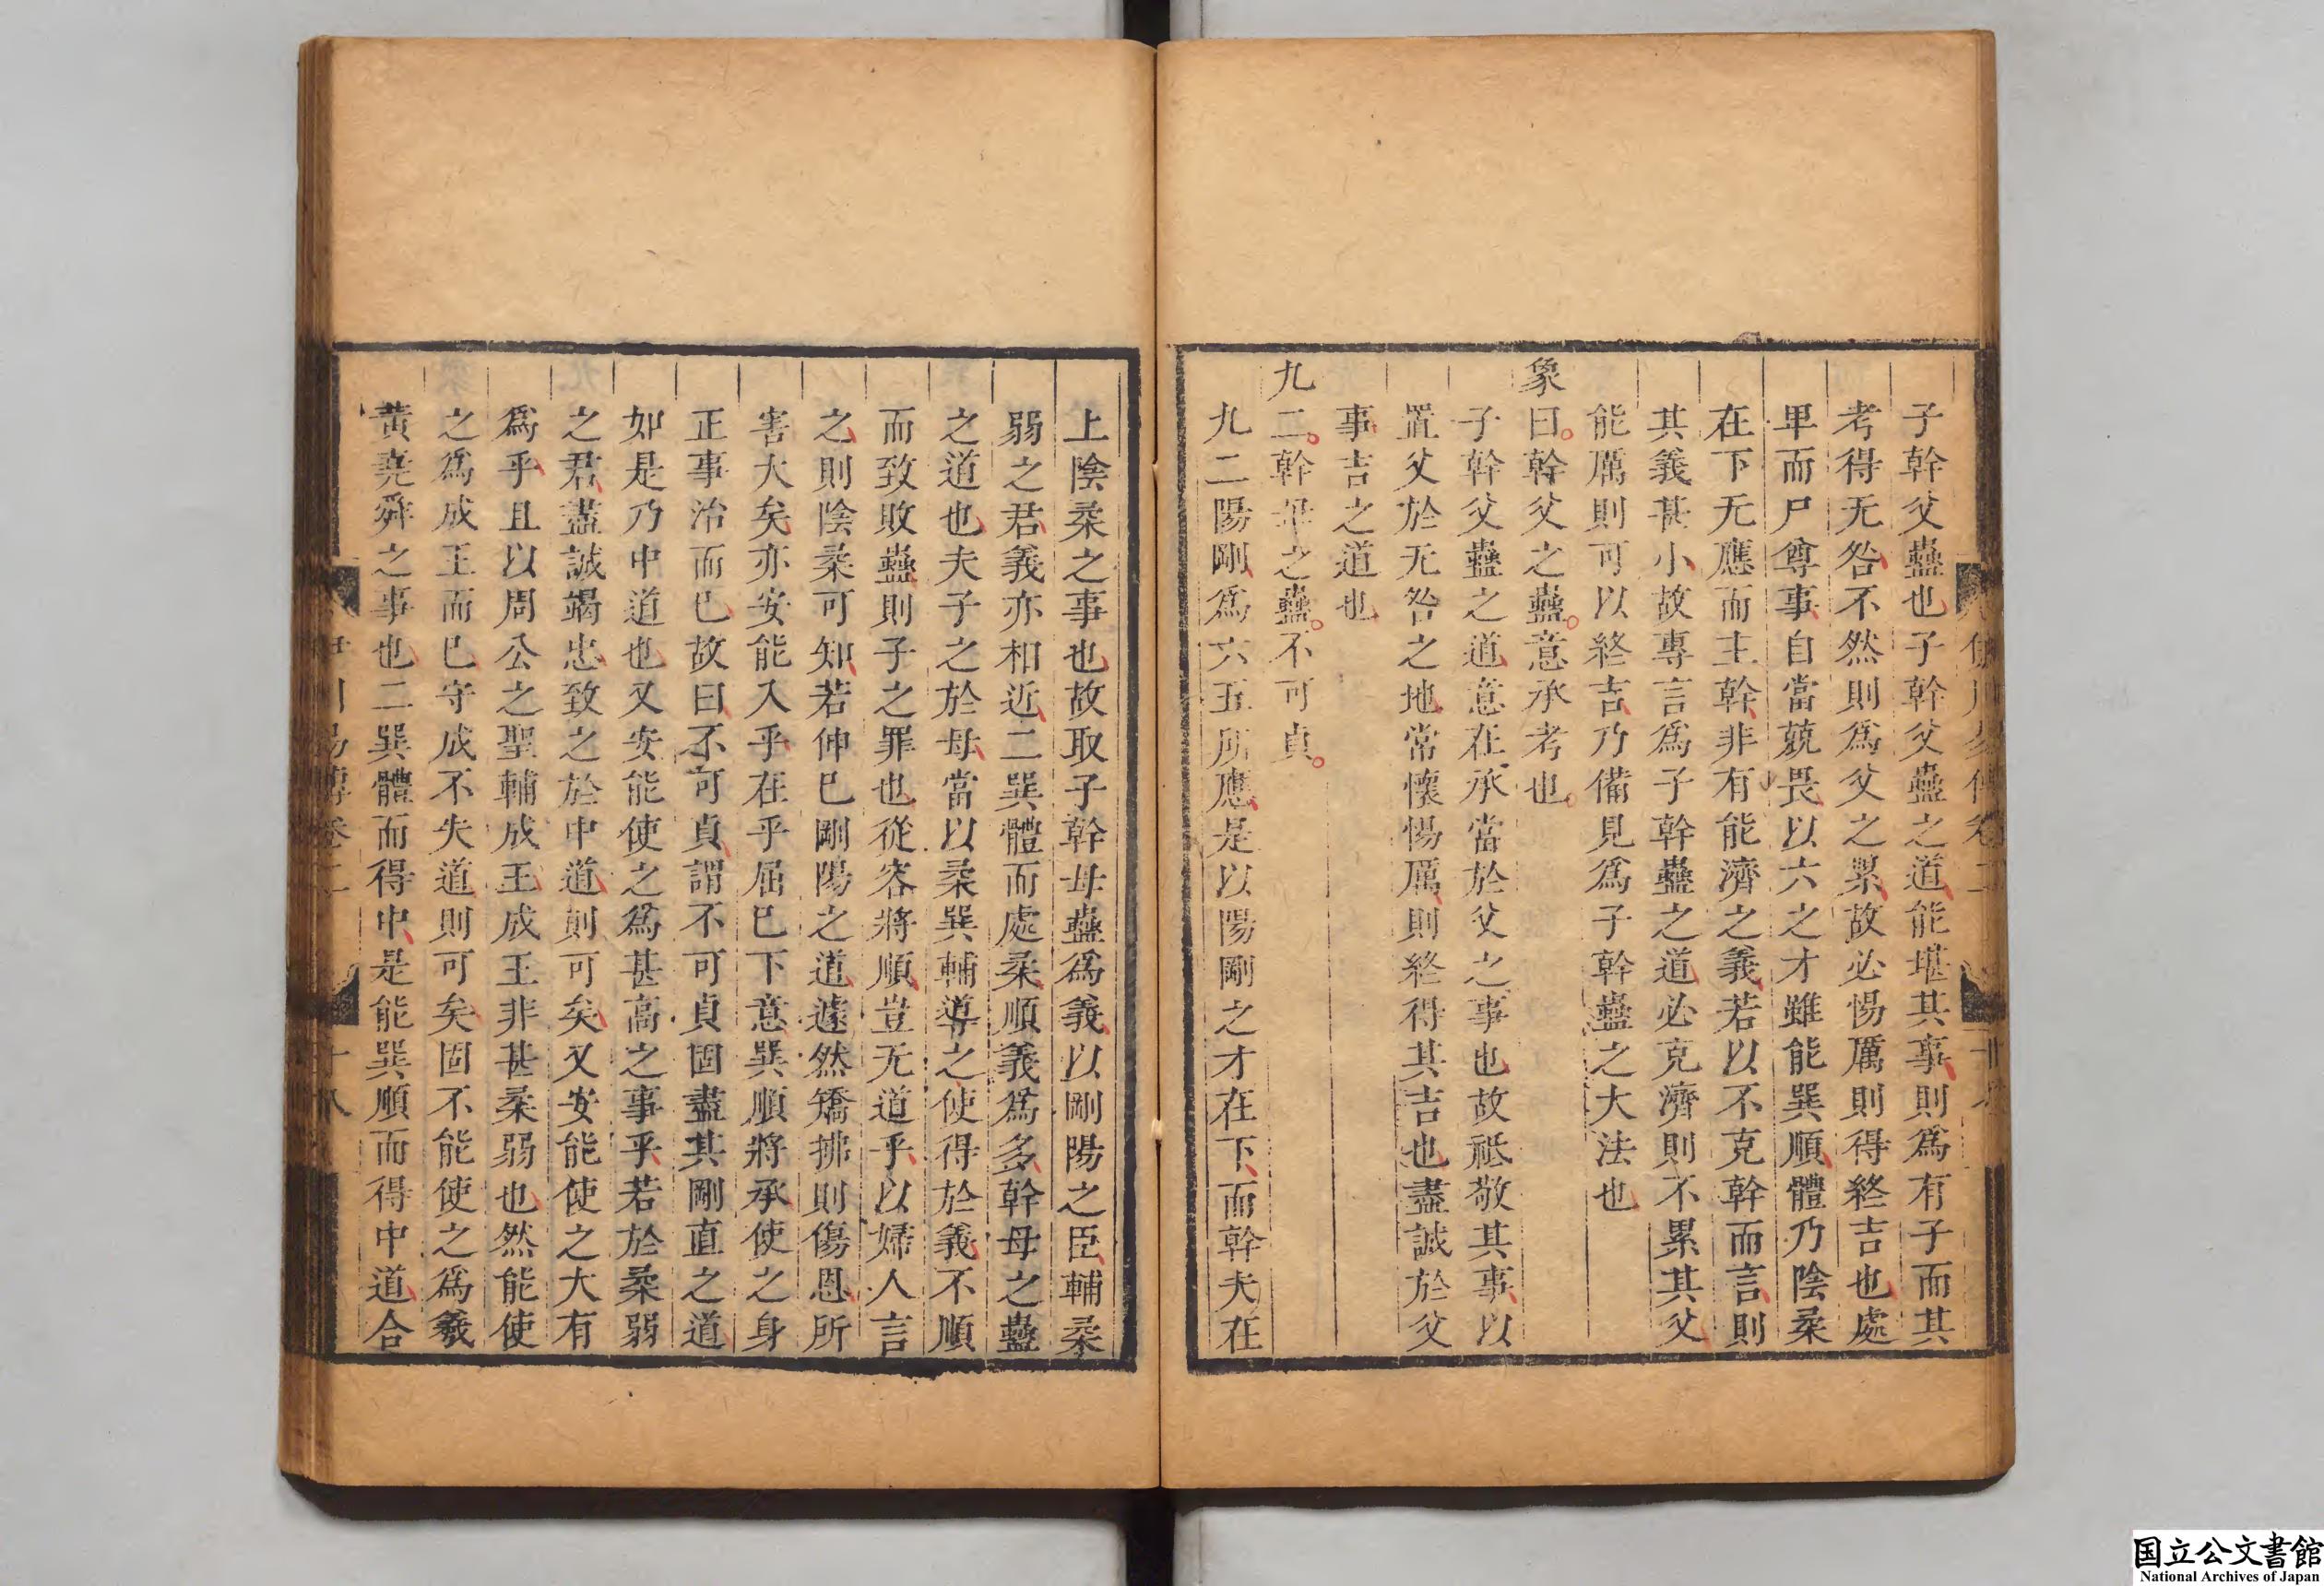 子幹父蠱也子幹父蠱之道能堪其事則爲有子而其
考得无咎不然則爲父之累故必惕厲則得終吉也處
卑而尸尊事自當兢畏以六之才雖能巽順體乃陰柔
在下无應而主幹非有能濟之義若以不克幹而言則
其義甚小故專言爲子幹蠱之道必克濟則不累其父
能厲則可以終吉乃備見爲子幹蠱之大法也
象曰幹父之蠱意承考也
子幹父蠱之道意在承當於父之事也故祗敬其事以
置父於无咎之地常懷惕厲則終得其吉也盡誠於父
事吉之道也
九二幹母之蠱不可貞
九二陽剛爲六五所應是以陽剛之才在下而幹夫在
上陰柔之事也故取子幹母蠱爲義以剛陽之臣輔柔
弱之君義亦相近二巽體而處柔順義爲多幹母之蠱
之道也夫子之於母當以柔巽輔導之使得於義不順
而致敗蠱則子之罪也從容將順豈无道乎以婦人言
之則陰柔可知若伸己剛陽之道遽然矯拂則傷恩所
害大矣亦安能入乎在乎屈己下意巽順將承使之身
正事治而已故曰不可貞謂不可貞固盡其剛直之道
如是乃中道也又安能使之爲甚高之事乎若於柔弱
之君盡誠竭忠致之於中道則可矣又安能使之大有
爲乎且以周公之聖輔成王成王非甚柔弱也然能使
之爲成王而已守成不失道則可矣固不能使之爲羲
黃堯舜之事也二巽體而得中是能巽順而得中道合
伊川易傳卷二
十八
国立公文書館
National Archives of Japan